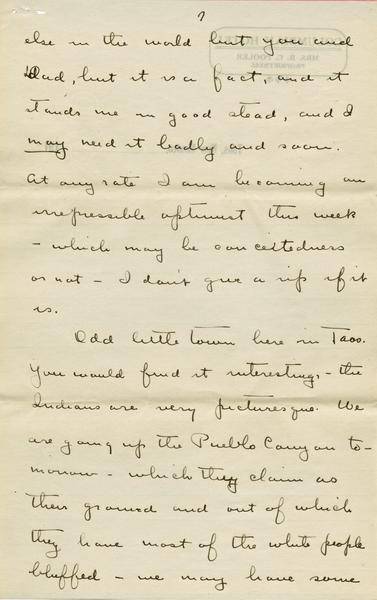 7
else in the world but you and
Dad, but it is a fact, and it
stands me in good stead, and I
may need it badly and soon.
At any rate I am becoming an
irrepressible optimist this week
- which may be conceitedness
or not - I don't give a rip if it
is.
Odd little town here in Taos.
You would find it interesting, - the
Indians are very picturesque. We
are going up the Pueblo Canyon to-
morrow - which they claim as
their ground and out of which
they have most of the white people
bluffed - we may have some